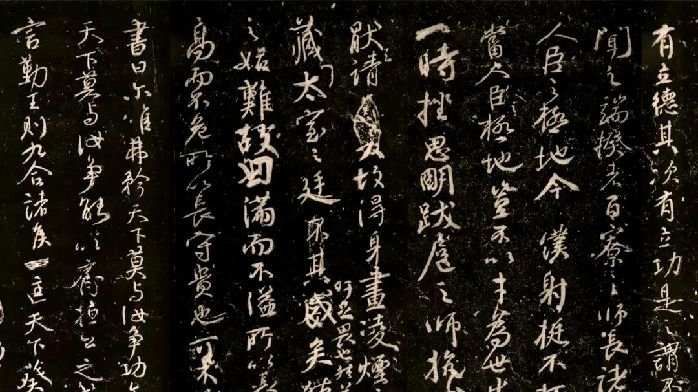 有立德其次有立功是之謂不
聞之端揆者百寮之師長諸
人臣之極地今僕射挺不
當人臣極地豈不以才為世出
一時挫思明跋扈之師抗
猒請故得身畫凌煙
藏太室之廷其盛矣然
吁足畏也
之始難故曰滿而不溢所以長
高而不危所以長守貴也可不
書曰尔唯弗矜天下莫与汝争功尔
天下莫与汝争能以齊桓公之盛
言勤王則九合諸侯一匡天下葵